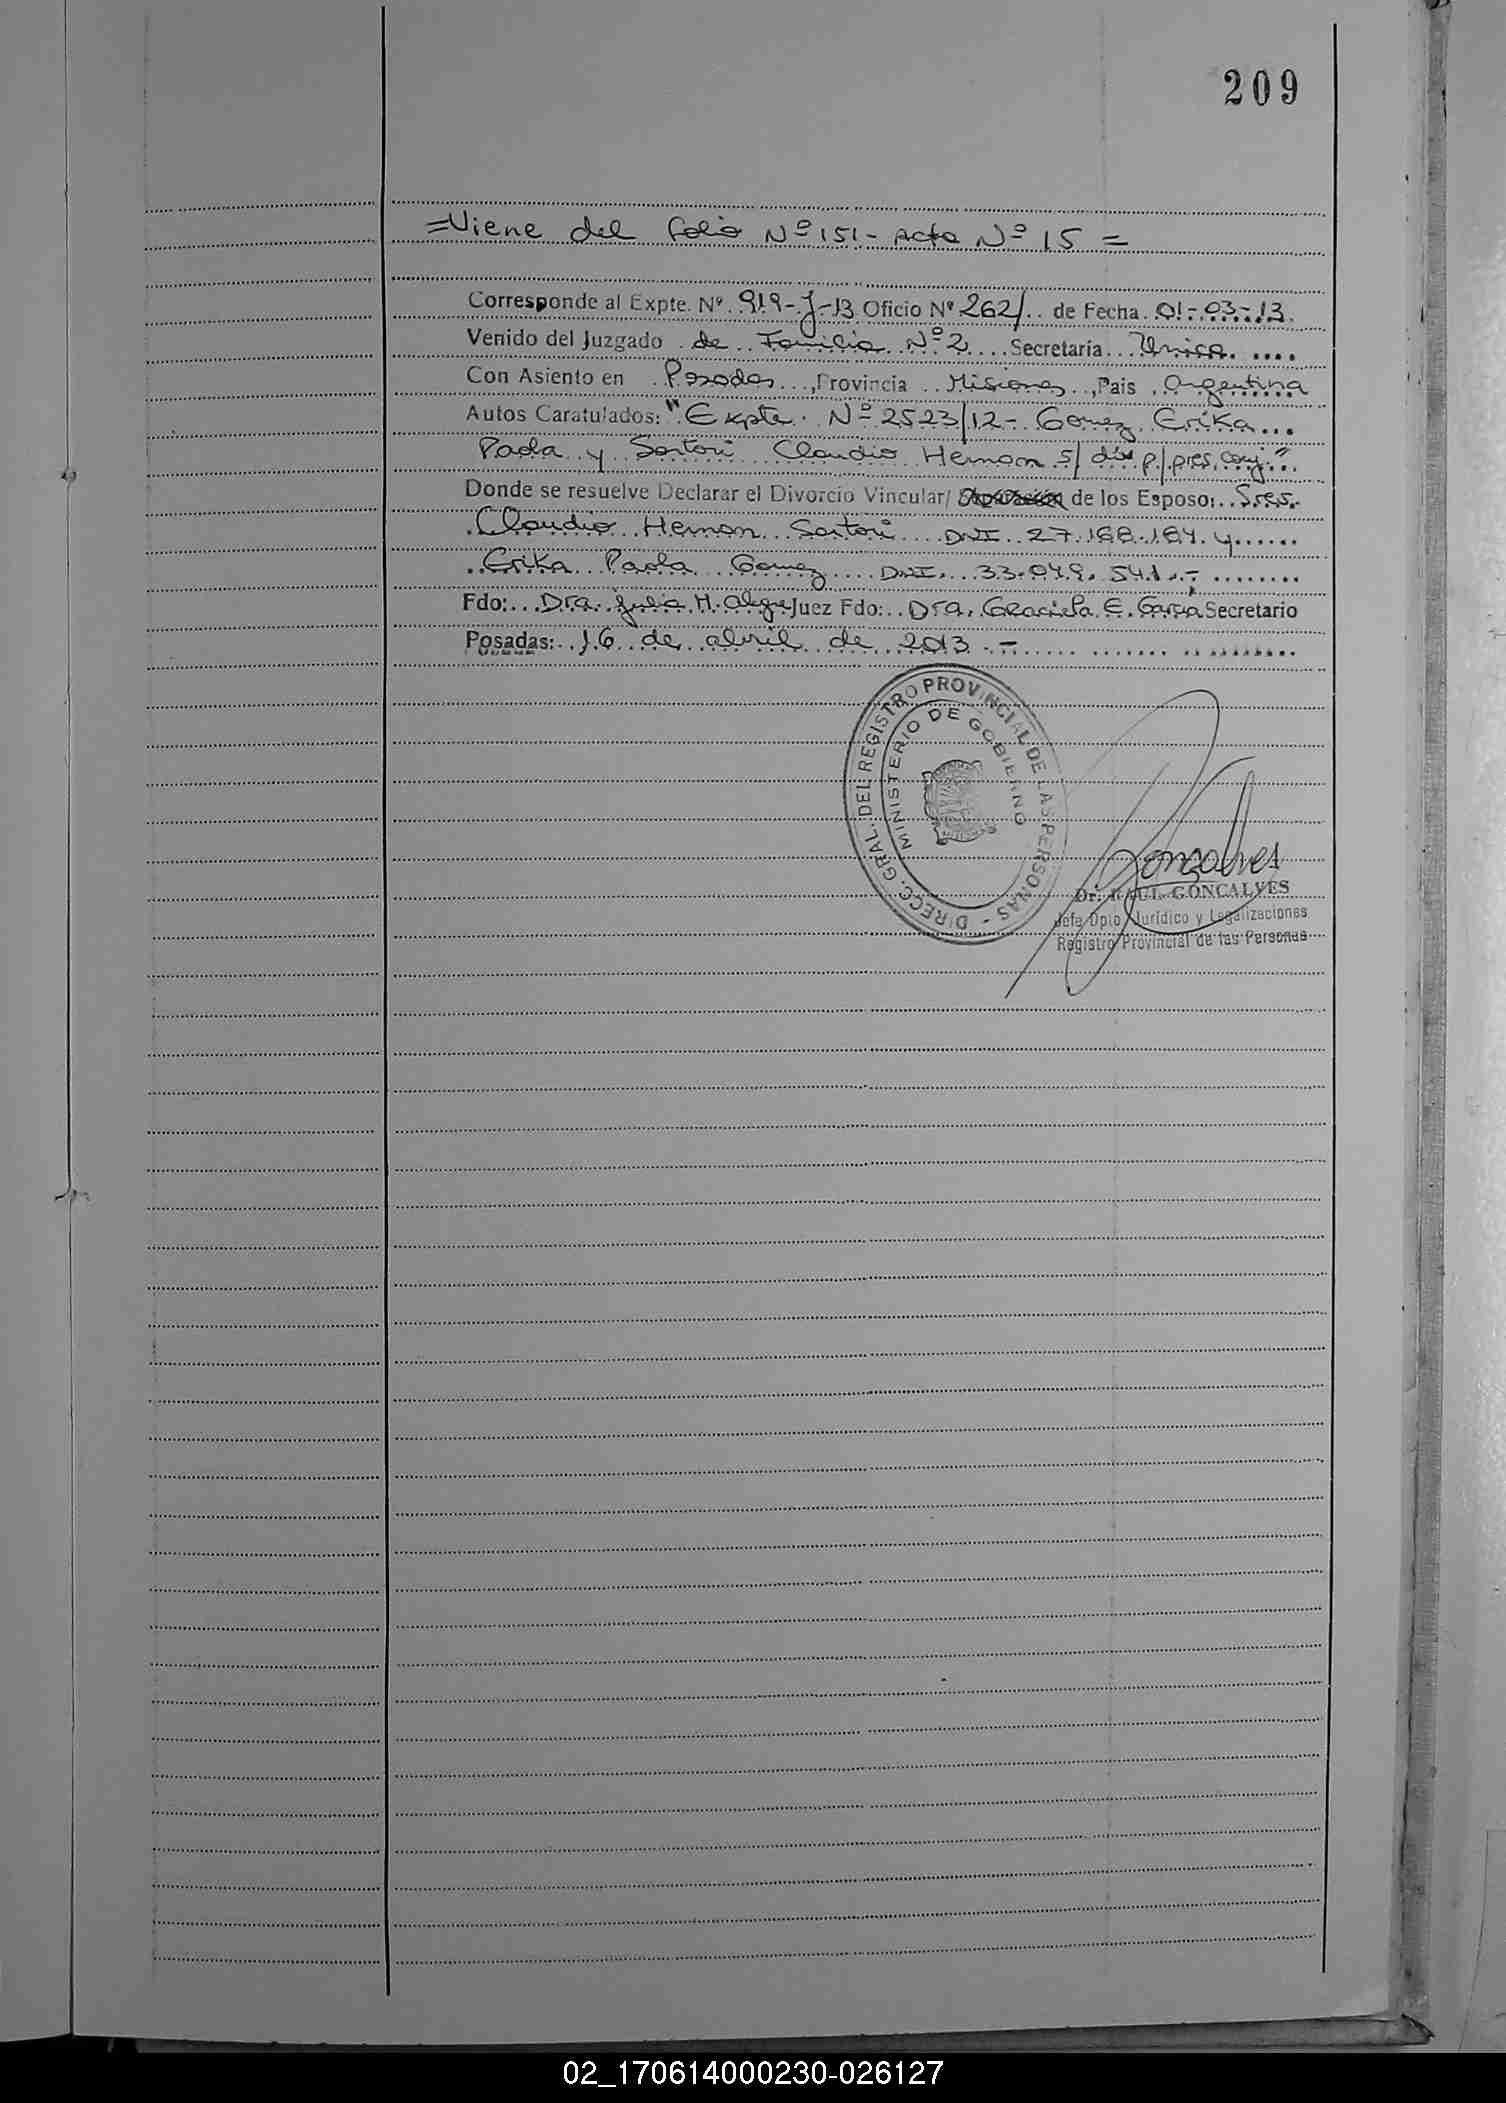 209
=Viene del folio Nº 151 - Acta Nº 15 =
Corresponde al Expte. Nº 919-J-13 Oficio Nº 262/.. de Fecha 01-03-13.
Venido del Juzgado de Familia Nº 2 .... Secretaría ... Unica. ....
Con Asiento en Posadas..., Provincia .. Misiones.., Pais . Argentina
Autos Caratulados: "Expte. Nº 2523/12 - Gomez Erika...
Paola y Sartori Claudio Hernan s/ div p/ pres. conj."..
Donde se resuelve Declarar el Divorcio Vincular/ de los Esposos: Sres.
Claudio Hernan Sartori DNI 27.188.184 y......
Erika Paola Gomez DNI. 33.049.541.-
Fdo: Dra. Julia H. Juez Fdo: Dra. Graciela E. Garcia Secretario
Posadas: 16 de abril de 2013.-
DIRECC. GRAL. DEL REGISTRO PROVINCIAL DE LAS PERSONAS -
MINISTERIO DE GOBIERNO
Gonçalves
Dr. RAUL GONCALVES
Jefe Dpto Jurídico y Legalizaciones
Registro Provincial de las Personas
02_170614000230-026127